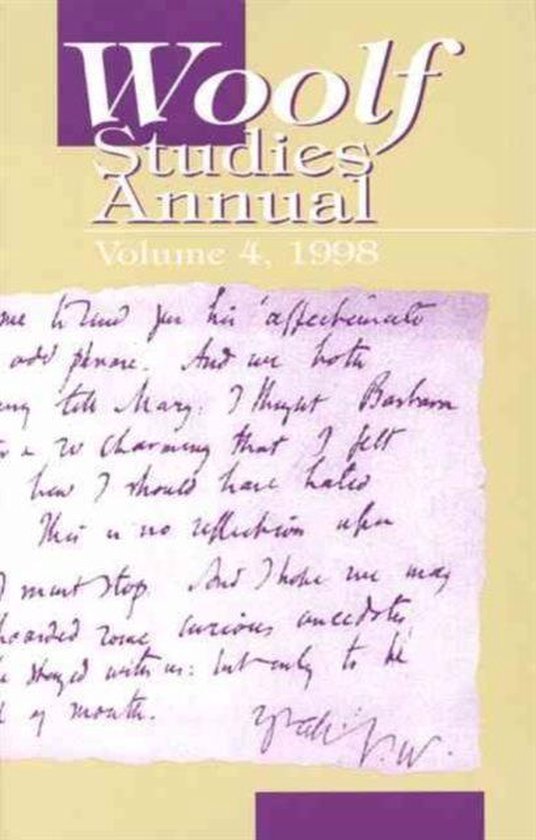 Woolf
Studies
Annual
Volume 4, 1998
me to send you his 'affectionate
odd phrase. And we both
tell Mary: I thought Barbara
so charming that I felt
how I should have hated
This is no reflection upon
I must stop. And I hope we may
hoarded some curious anecdotes
stayed with us: but only to be
of mouth.
V.W.